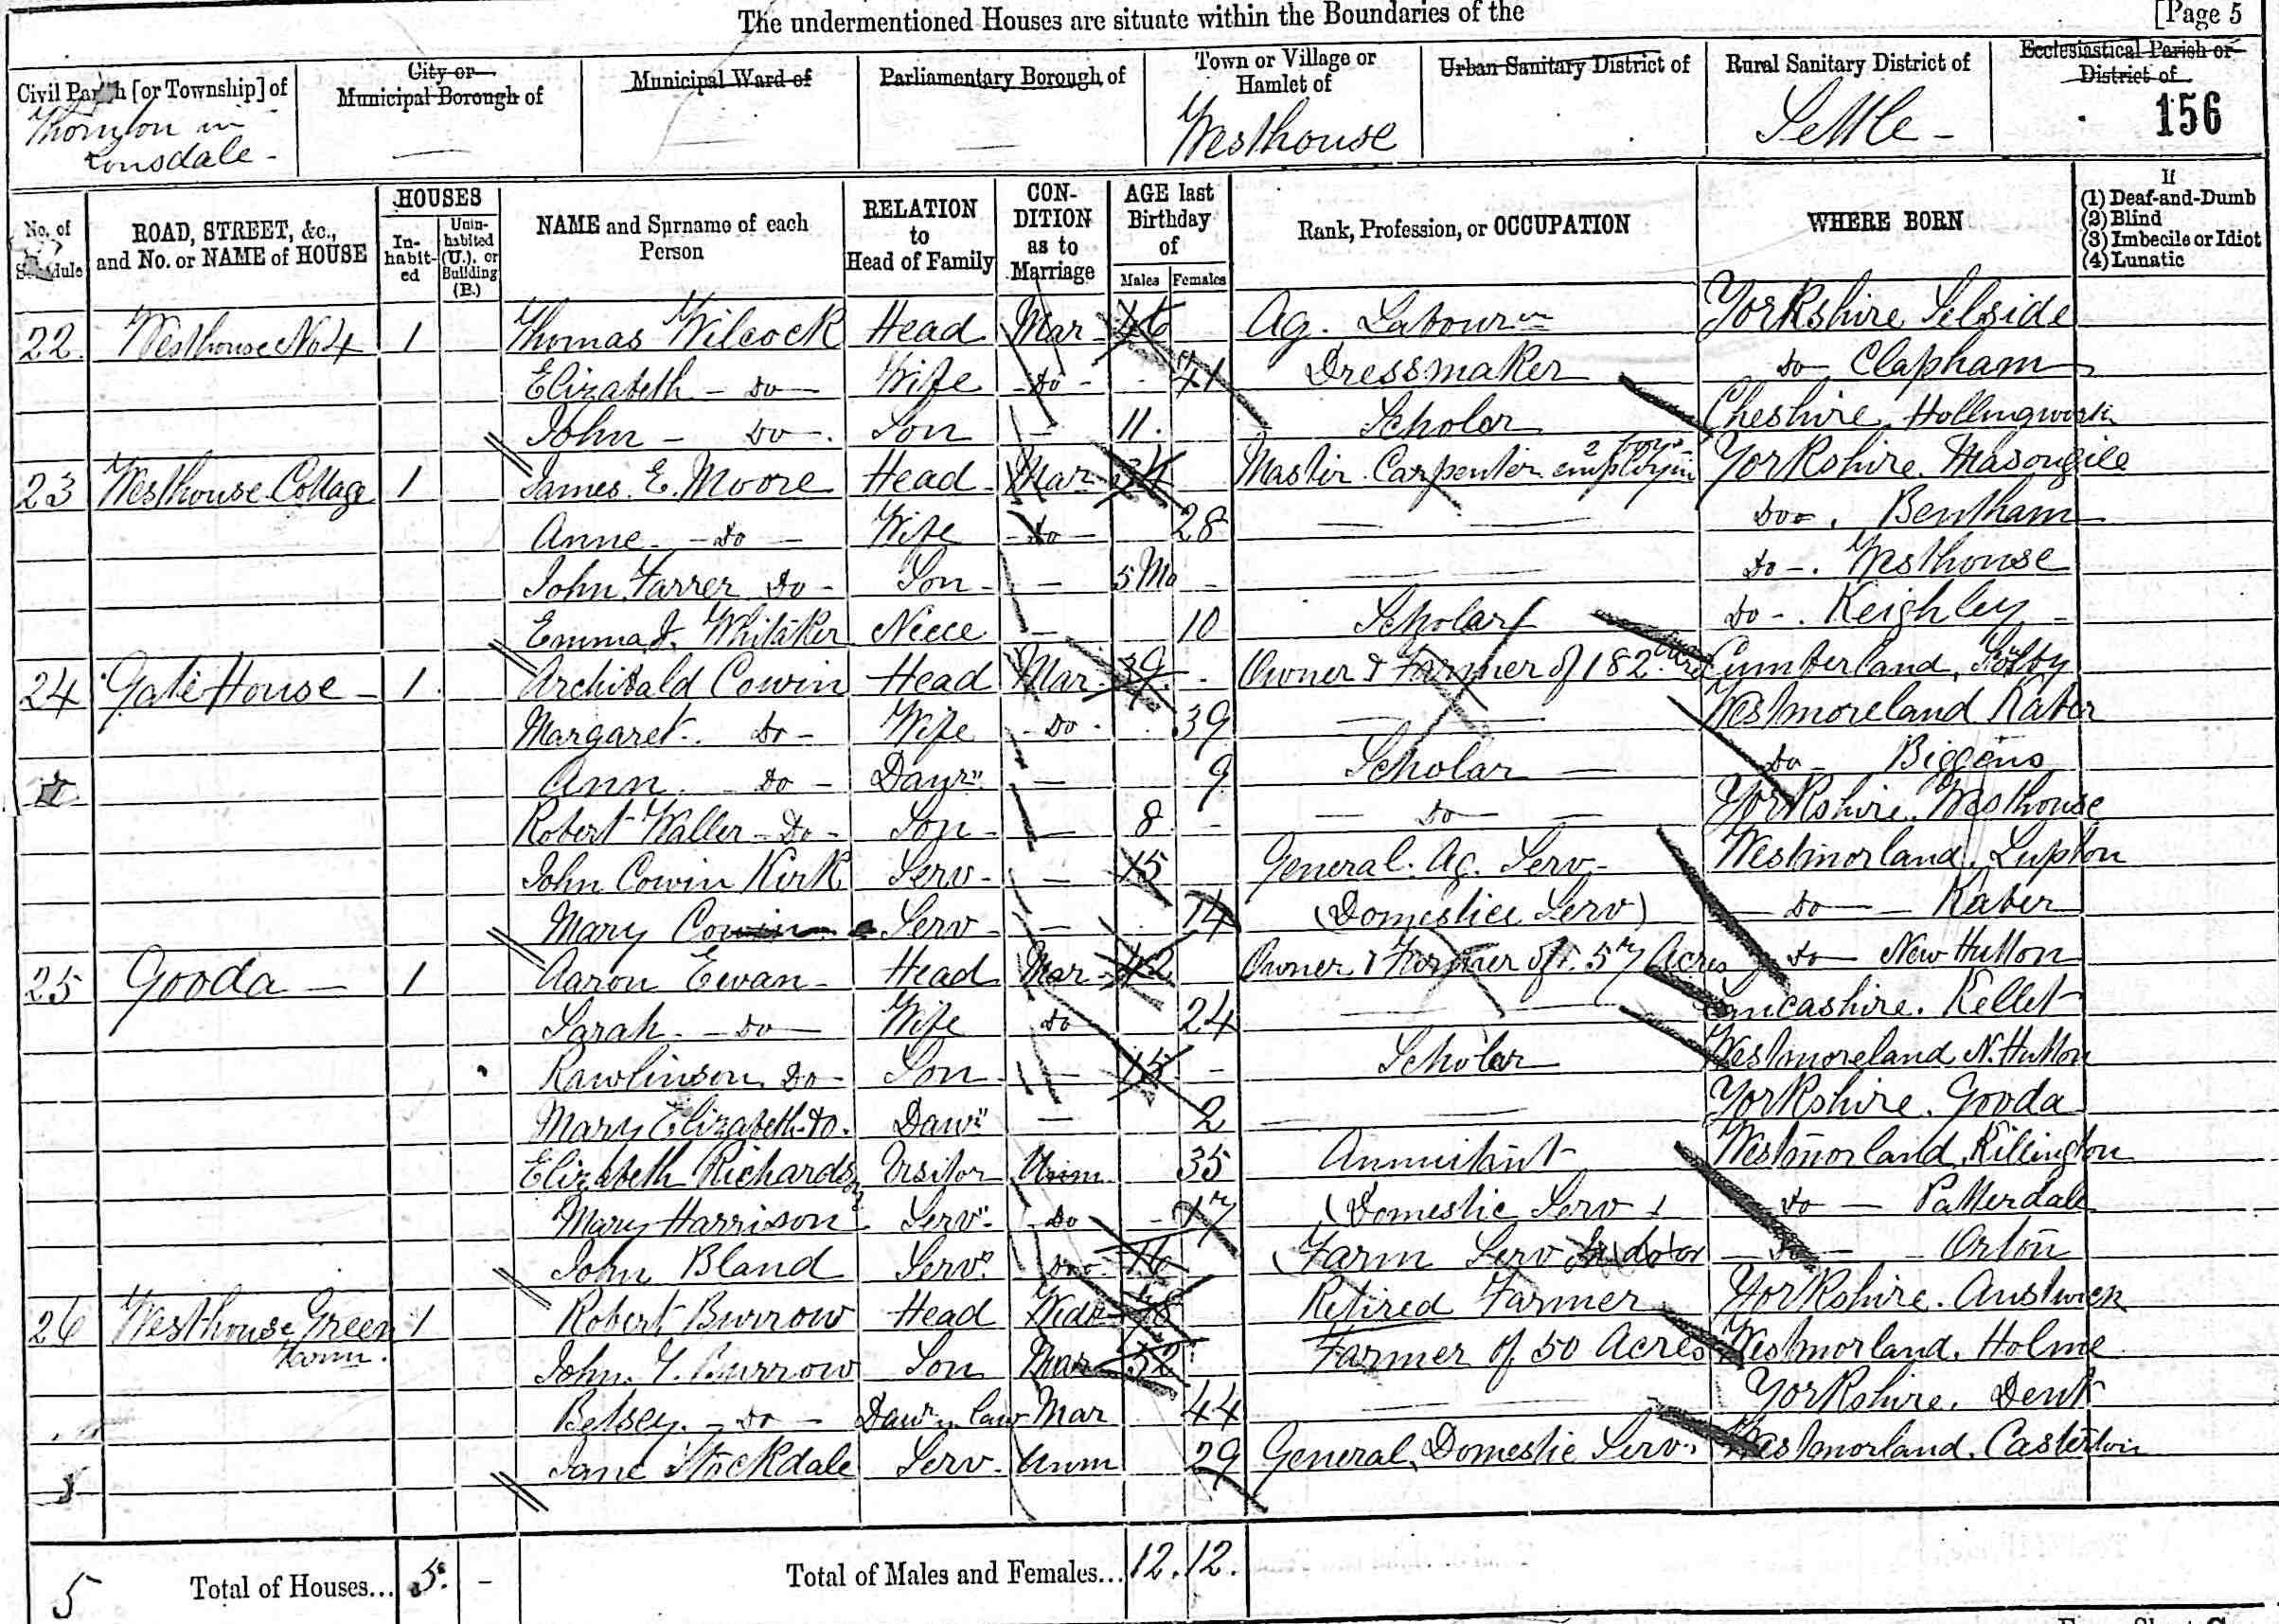 The undermentioned Houses are situate within the Boundaries of the [Page 5
Civil Parish [or Township] of City or Municipal Borough of Municipal Ward of Parliamentary Borough of Town or Village or Hamlet of Urban Sanitary District of Rural Sanitary District of Ecclesiastical Parish or District of
Thornton in Lonsdale - — — Westhouse Settle - 156
No. of Schedule ROAD, STREET, &c., and No. or NAME of HOUSE HOUSES Inhabited Uninhabited (U.), or Building (B.) NAME and Surname of each Person RELATION to Head of Family CONDITION as to Marriage AGE last Birthday of Males Females Rank, Profession, or OCCUPATION WHERE BORN If (1) Deaf-and-Dumb (2) Blind (3) Imbecile or Idiot (4) Lunatic
22 Westhouse No 4 1 Thomas Wilcock Head Mar 46 Ag. Labourer Yorkshire Selside
Elizabeth - Do - Wife - Do - 41 Dressmaker Do Clapham
John - Do - Son - 11. Scholar Cheshire Hollingworth
23 Westhouse Cottage 1 James E. Moore Head Mar 34 Master Carpenter employing 2 boys Yorkshire. Masongile
Anne - Do - Wife - Do - 28 — — Do. Bentham
John Farrer Do - Son - — 5 Mo - — — Do -. Westhouse
Emma J. Whitaker Niece — 10 Scholar Do -. Keighley -
24 Gate House - 1. Archibald Cowin Head Mar 39 - Owner & Farmer of 182 Cumberland,
Margaret Do - Wife - Do - 39 — — Westmoreland Kaber
Ann Do - Daur" — 9 Scholar — Do - Biggins
Robert Waller - Do - Son - — 8 - — Do — Yorkshire. Westhouse
John Cowin Kirk Serv - — 15 General Ag. Serv - Westmorland, Lupton
Mary Cowin Serv - — 14 (Domestice Serv) — Do — Kaber
25 Gooda — 1 Aaron Ewan - Head Mar 42 Owner & Farmer of 57 Acres Do — New Hutton
Sarah - Do - Wife Do 24 — — Lancashire. Kellet
Rawlinson Do - Son - — 15 - Scholar Westmoreland N. Hutton
Mary Elizabeth Do. Daur" — 2 — — Yorkshire. Gooda
Elizabeth Richardson Visitor Unm 35 Annuitant Westmorland, Killington
Mary Harrison Serv". - Do - 17 (Domestic Serv Do — Patterdale
John Bland Serv". Do 16 (Farm Serv Indoor — Do — Orton
26 Westhouse Green Farm. 1 Robert Burrow Head Widr 78 Retired Farmer Yorkshire. Austwick
John Burrow Son Mar 52 Farmer of 50 Acres Westmorland. Holme
Betsey - Do - Daur in law Mar 44 — — Yorkshire. Dent
Jane Stockdale Serv - Unm 29 General Domestic Serv Westmorland. Casterton
5 Total of Houses... 5. - Total of Males and Females... 12. 12.